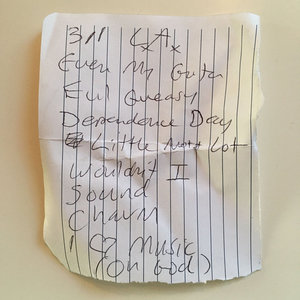 311 L.A.
Even My Guitar
Evil Queasy
Dependence Day
Little Not a Lot
Wouldn't I
Sound
Charm
I ♡ Music
(Oh God)